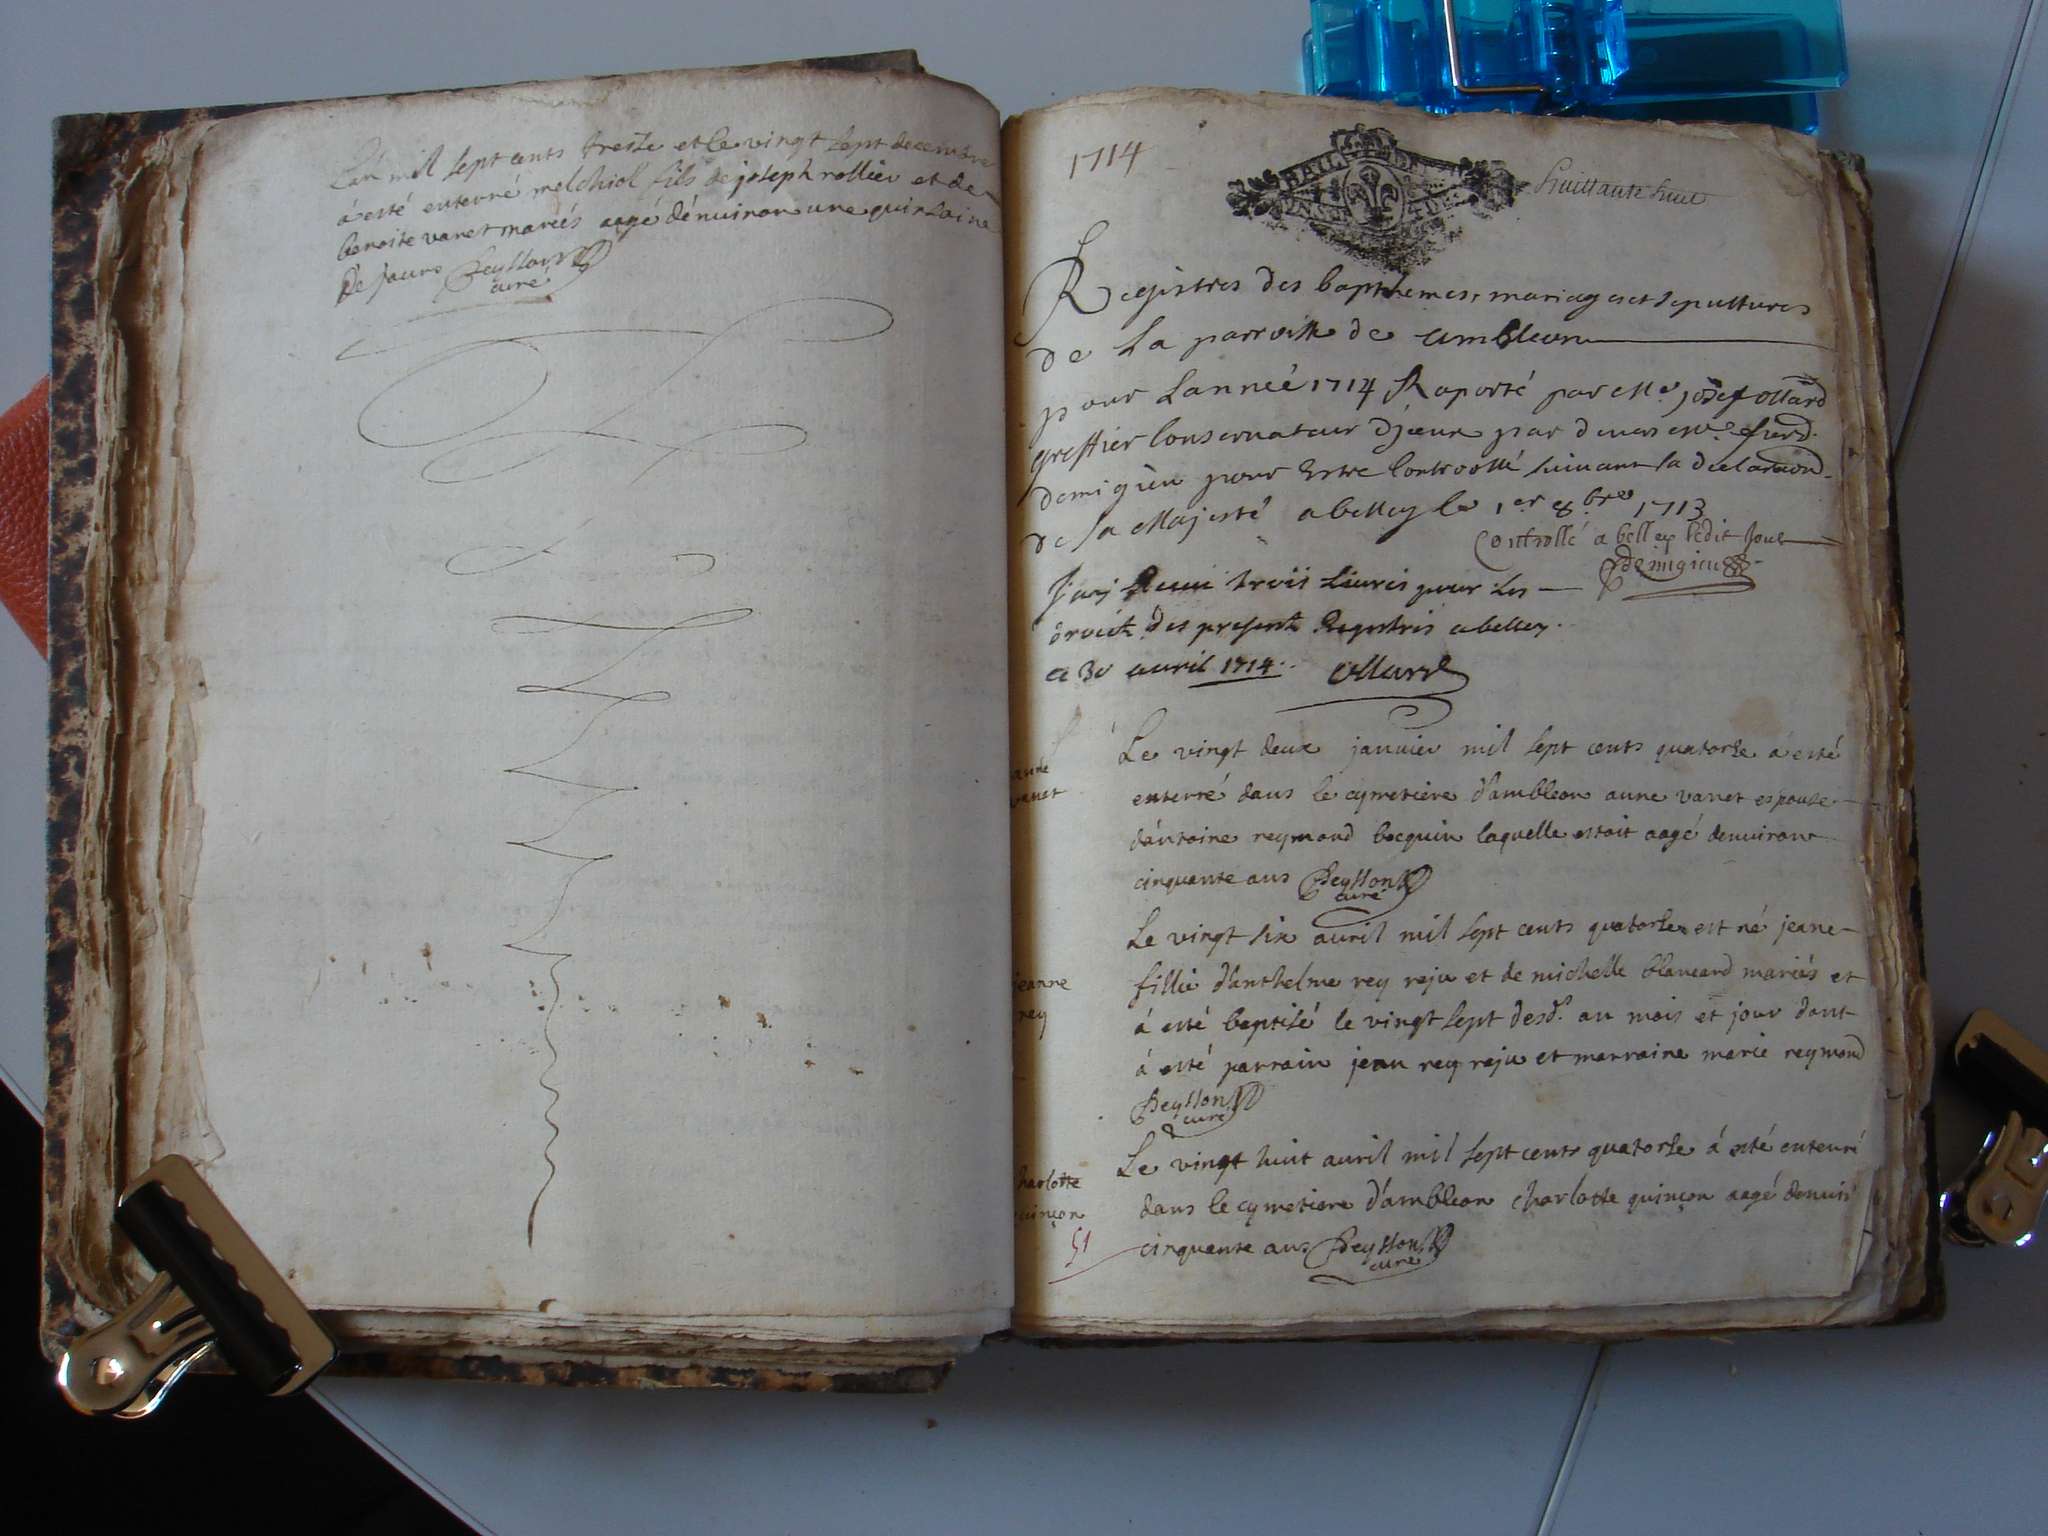 L'an mil sept cents treise et le vingt sept decembre
á esté enterré melchiol fils de joseph rollier et de
benoite vanet mariés aagé dénuiron une quinsaine
de jours Peysson
curé
1714
BAIL
huittante huit
Registres des bapthemes, mariages et sepultures
de La parroisse de ambleon
pour Lanneé 1714 Raporté par Me. josef ollard
greffier Conseruateur
demigieu pour Estre Controollé suiuant la declaraond.
de sa Majesté a belley le 1er 8.bre 1713
Controllé a belley ledit Jour
Demigieu
J'ay Receu trois Liures pour Les
droictz des present Registres a belley
ce 30 auril 1714. Ollard
Le vingt deux januier mil sept cents quatorse á esté
enterré dans le cymetiere d'ambleon anne vanet espouse
d'antoine reymond bocquin laquelle estoit aagé denuiron
cinquante ans Peysson
curé
vanet
Le vingt six auril mil sept cents quatorse est né jeane
fillie d'anthelme rey reju et de michelle blancard mariés et
á esté baptisé le vingt sept desd. an mois et jour dont
á esté parrain jean rey reju et marraine marie reymond
Peysson
curé
jeanne
rey
Le vingt huit auril mil sept cents quatorse á esté enterré
dans le cymetiere d'ambleon charlotte quinçon aagé denuirõ
cinquante ans Peysson
curé
harlotte
uinçon
51